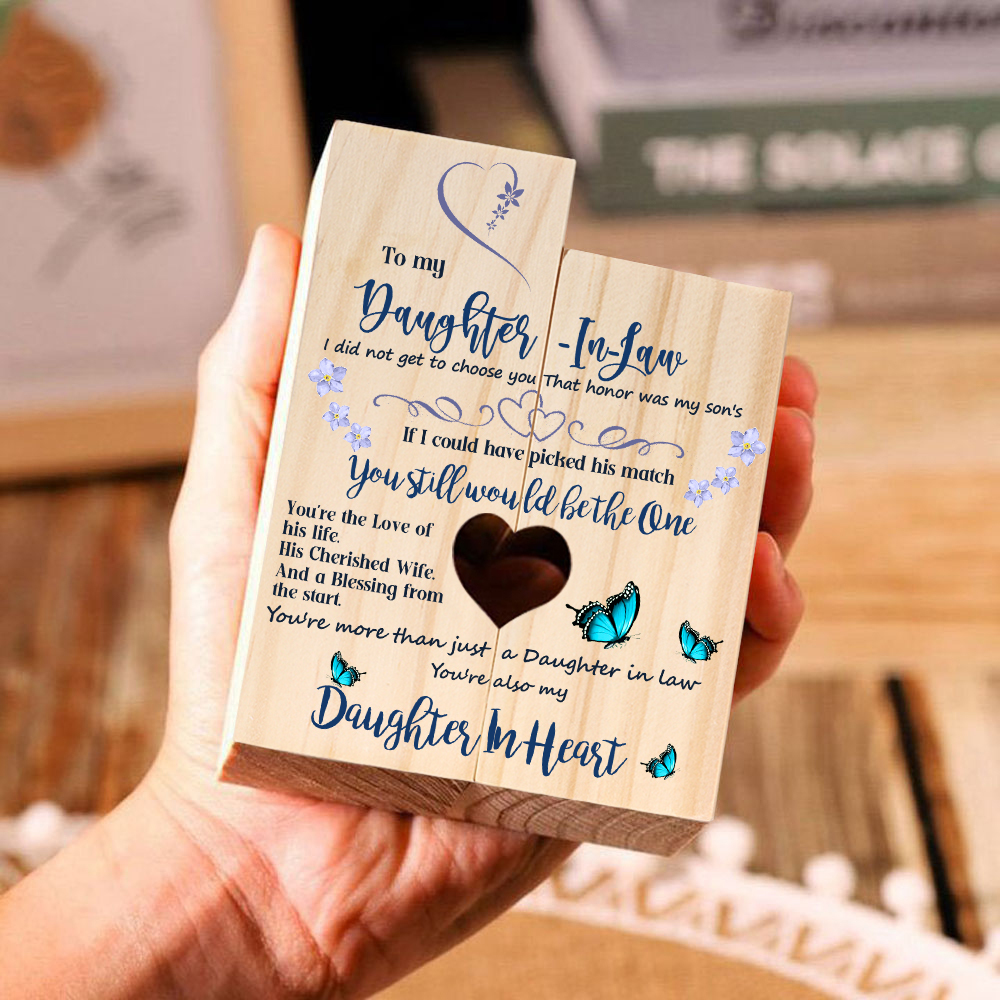 To my
Daughter-In-Law
I did not get to choose you That honor was my son's
If I could have picked his match
You still would be the One
You're the Love of
his life.
His Cherished Wife.
And a Blessing from
the start.
You're more than just a Daughter in law
You're also my
Daughter In Heart
THE SOLACE